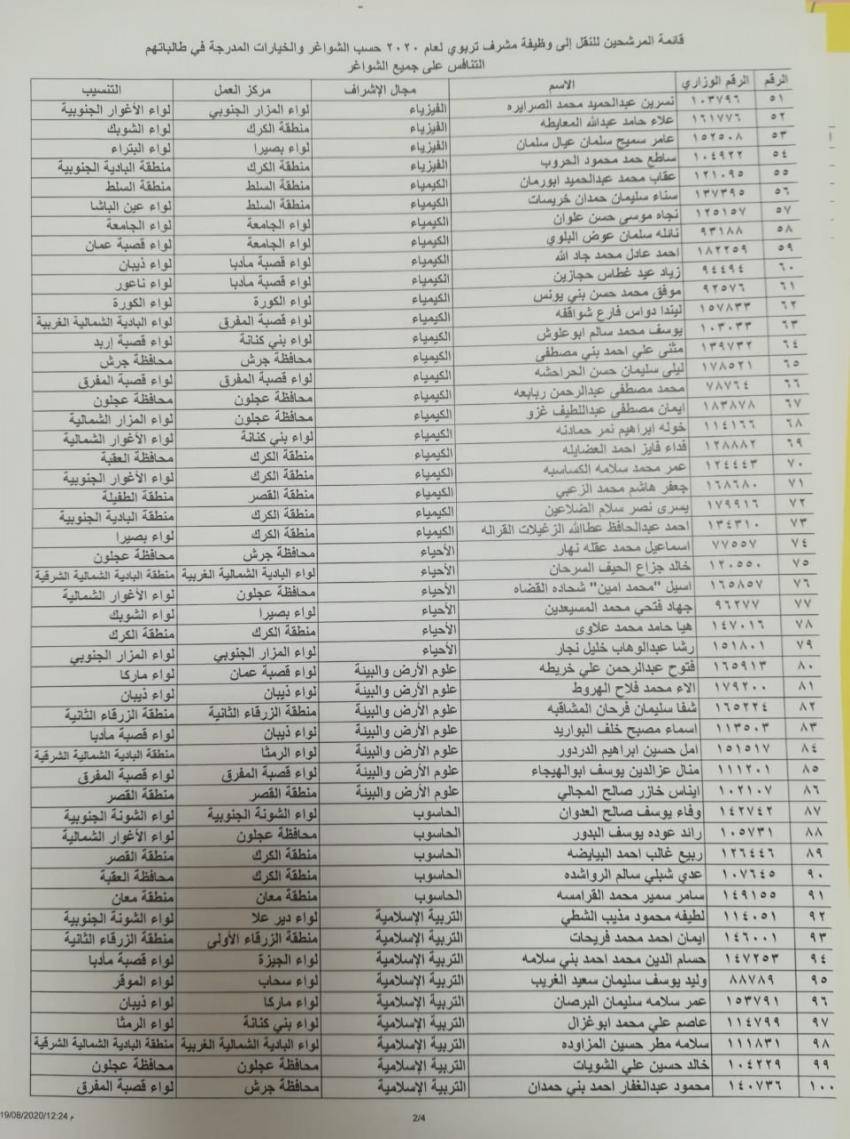 قائمة المرشحين للنقل إلى وظيفة مشرف تربوي لعام ٢٠٢٠ حسب الشواغر والخيارات المدرجة في طالباتهم
التنافس على جميع الشواغر
الرقم الرقم الوزاري الاسم مجال الإشراف مركز العمل التنسيب
٥١ ١٠٣٧٩٦ نسرين عبدالحميد محمد الصرايره الفيزياء لواء المزار الجنوبي لواء الأغوار الجنوبية
٥٢ ١٦١٧٧٦ علاء حامد عبدالله المعايطه الفيزياء منطقة الكرك لواء الشوبك
٥٣ ١٥٢٥٠٨ عامر سميح سلمان عيال سلمان الفيزياء لواء بصيرا لواء البتراء
٥٤ ١٠٤٩٢٢ ساطع حمد محمود الحروب الفيزياء منطقة الكرك منطقة البادية الجنوبية
٥٥ ١٢١٠٩٥ عقاب محمد عبدالحميد ابورمان الكيمياء منطقة السلط منطقة السلط
٥٦ ١٣٧٣٩٥ سناء سليمان حمدان خريسات الكيمياء منطقة السلط لواء عين الباشا
٥٧ ١٢٥١٥٧ نجاه موسى حسن علوان الكيمياء لواء الجامعة لواء الجامعة
٥٨ ٩٣١٨٨ نائله سلمان عوض البلوي الكيمياء لواء الجامعة لواء قصبة عمان
٥٩ ١٨٢٢٥٩ احمد عادل محمد جاد الله الكيمياء لواء قصبة مادبا لواء ذيبان
٦٠ ٩٤٤٩٤ زياد عيد غطاس حجازين الكيمياء لواء قصبة مادبا لواء ناعور
٦١ ٩٢٥٧٦ موفق محمد حسن بني يونس الكيمياء لواء الكورة لواء الكورة
٦٢ ١٥٧٨٣٣ ليندا دواس فارع شواقفه الكيمياء لواء قصبة المفرق لواء البادية الشمالية الغربية
٦٣ ١٠٣٠٣٣ يوسف محمد سالم ابوعلوش الكيمياء لواء بني كنانة لواء قصبة إربد
٦٤ ١٣٩٧٣٢ مثنى علي احمد بني مصطفى الكيمياء محافظة جرش محافظة جرش
٦٥ ١٧٨٥٢١ ليلى سليمان حسن الحراحشه الكيمياء لواء قصبة المفرق لواء قصبة المفرق
٦٦ ٧٨٧٦٤ محمد مصطفى عبدالرحمن ربابعه الكيمياء محافظة عجلون محافظة عجلون
٦٧ ١٨٣٨٧٨ ايمان مصطفى عبداللطيف غزو الكيمياء محافظة عجلون لواء المزار الشمالية
٦٨ ١١٤١٦٦ خوله ابراهيم نمر حمادنه الكيمياء لواء بني كنانة لواء الأغوار الشمالية
٦٩ ١٢٨٨٨٢ فداء فايز احمد العضايله الكيمياء منطقة الكرك محافظة العقبة
٧٠ ١٢٤٤٤٣ عمر محمد سلامه الكساسبه الكيمياء منطقة الكرك لواء الأغوار الجنوبية
٧١ ١٦٨٦٨٠ جعفر هاشم محمد الزعبي الكيمياء منطقة القصر منطقة الطفيلة
٧٢ ١٧٩٩١٦ يسرى نصر سلام الضلاعين الكيمياء منطقة الكرك منطقة البادية الجنوبية
٧٣ ١٣٤٣١٠ احمد عبدالحافظ عطاالله الزغيلات القراله الكيمياء منطقة الكرك لواء بصيرا
٧٤ ٧٧٥٥٧ اسماعيل محمد عقله نهار الأحياء محافظة جرش محافظة عجلون
٧٥ ١٢٠٥٥٠ خالد جزاع الحيف السرحان الأحياء لواء البادية الشمالية الغربية منطقة البادية الشمالية الشرقية
٧٦ ١٦٥٨٥٧ اسيل "محمد امين" شحاده القضاه الأحياء محافظة عجلون لواء الأغوار الشمالية
٧٧ ٩٦٢٧٧ جهاد فتحي محمد المسيعدين الأحياء لواء بصيرا لواء الشوبك
٧٨ ١٤٧٠١٦ هيا حامد محمد علاوى الأحياء منطقة الكرك منطقة الكرك
٧٩ ١٥١٨٠١ رشا عبدالوهاب خليل نجار الأحياء لواء المزار الجنوبي لواء المزار الجنوبي
٨٠ ١٦٥٩١٣ فتوح عبدالرحمن علي خريطه علوم الأرض والبيئة لواء قصبة عمان لواء ماركا
٨١ ١٧٩٢٠٠ الاء محمد فلاح الهروط علوم الأرض والبيئة لواء ذيبان لواء ذيبان
٨٢ ١٦٥٢٢٤ شفا سليمان فرحان المشاقبه علوم الأرض والبيئة منطقة الزرقاء الثانية منطقة الزرقاء الثانية
٨٣ ١١٣٥٠٣ اسماء مصبح خلف البواريد علوم الأرض والبيئة لواء ذيبان لواء قصبة مادبا
٨٤ ١٥١٥١٧ امل حسين ابراهيم الدردور علوم الأرض والبيئة لواء الرمثا منطقة البادية الشمالية الشرقية
٨٥ ١١١٢٠١ منال عزالدين يوسف ابوالهيجاء علوم الأرض والبيئة لواء قصبة المفرق لواء قصبة المفرق
٨٦ ١٠٢١٠٧ ايناس خازر صالح المجالي علوم الأرض والبيئة منطقة القصر منطقة القصر
٨٧ ١٤٢٧٤٢ وفاء يوسف صالح العدوان الحاسوب لواء الشونة الجنوبية لواء الشونة الجنوبية
٨٨ ١٠٥٧٣١ رائد عوده يوسف البدور الحاسوب محافظة عجلون لواء الأغوار الشمالية
٨٩ ١٢٦٤٤٦ ربيع غالب احمد البيايضه الحاسوب منطقة الكرك منطقة القصر
٩٠ ١٠٧٦٤٥ عدي شبلي سالم الرواشده الحاسوب منطقة الكرك محافظة العقبة
٩١ ١٤٩١٥٥ سامر سمير محمد القرامسه الحاسوب منطقة معان منطقة معان
٩٢ ١١٤٠٥١ لطيفه محمود مذيب الشطي التربية الإسلامية لواء دير علا لواء الشونة الجنوبية
٩٣ ١٤٦٠٠١ ايمان احمد محمد فريحات التربية الإسلامية منطقة الزرقاء الأولى منطقة الزرقاء الثانية
٩٤ ١٤٧٢٥٣ حسام الدين محمد احمد بني سلامه التربية الإسلامية لواء الجيزة لواء قصبة مادبا
٩٥ ٨٨٧٨٩ وليد يوسف سليمان سعيد الغريب التربية الإسلامية لواء سحاب لواء الموقر
٩٦ ١٥٣٧٩١ عمر سلامه سليمان البرصان التربية الإسلامية لواء ماركا لواء ذيبان
٩٧ ١١٤٧٩٩ عاصم علي محمد ابوغزال التربية الإسلامية لواء بني كنانة لواء الرمثا
٩٨ ١١١٨٣١ سلامه مطر حسين المزاوده التربية الإسلامية لواء البادية الشمالية الغربية منطقة البادية الشمالية الشرقية
٩٩ ١٠٤٢٢٩ خالد حسين علي الشويات التربية الإسلامية محافظة عجلون محافظة عجلون
١٠٠ ١٤٠٧٣٦ محمود عبدالغفار احمد بني حمدان التربية الإسلامية محافظة جرش لواء قصبة المفرق
2/4
م 19/08/2020/12:24